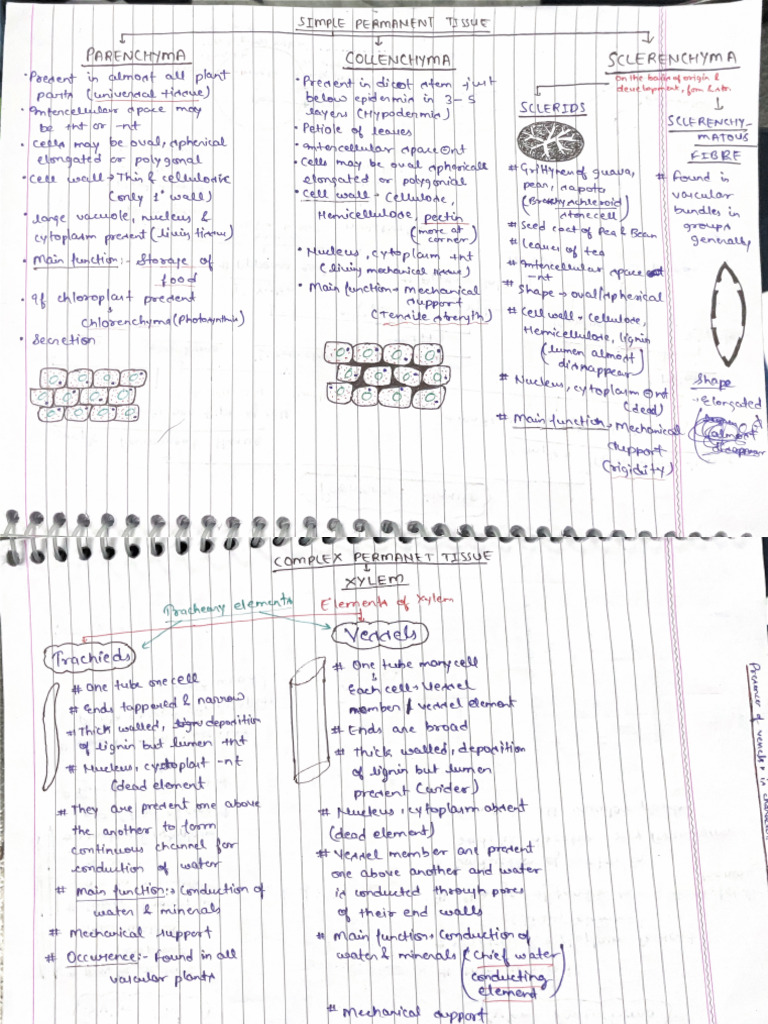 SIMPLE PERMANENT TISSUE
PARENCHYMA
• Present in almost all plant
parts (universal tissue)
• Intercellular space may
be +nt or -nt
• Cells may be oval, spherical
elongated or polygonal
• Cell wall → Thin & cellulosic
(only 1° wall)
• large vacuole, nucleus &
cytoplasm present (living tissue)
• Main function :- Storage of
food
• If chloroplast present
Chlorenchyma (Photosynthesis)
• Secretion
COLLENCHYMA
• Present in dicot stem just
below epidermis in 3-5
layers (Hypodermis)
• Petiole of leaves
• Intercellular space ⊖nt
• Cells may be oval spherical
elongated or polygonial
• Cell wall - Cellulose,
Hemicellulose, pectin
(more at
corner)
• Nucleus, cytoplasm +nt
(living mechanical tissue)
• Main function → Mechanical
support
(Tensile strength)
SCLERENCHYMA
On the basis of origin &
development, form & str.
SCLERIDS
# Grithynen of guava,
pear, sapota
(Brachysclereid)
stone cell
# Seed coat of Pea & Bean
# Leaves of tea
# Intercellular space
-nt
# Shape → oval/spherical
# Cell wall → Cellulose,
Hemicellulose, lignin
(lumen almost
disappear)
# Nucleus, cytoplasm ⊖nt
(dead)
# Main function → Mechanical
support
(rigidity)
SCLERENCHY-
MATOUS
FIBRE
# Found in
vascular
bundles in
groups
generally
Shape
→ Elongated
COMPLEX PERMANET TISSUE
XYLEM
Tracheary elements
Elements of Xylem
Trachieds
# One tube one cell
# Ends tappared & narrow
# Thick walled, deposition
of lignin but lumen +nt
# Nucleus, cytoplast -nt
(dead element)
# They are present one above
the another to form
continuous channel for
conduction of water
# Main function :→ Conduction of
water & minerals
# Mechanical support
# Occurence :- Found in all
vascular plants
Vessels
# One tube many cell
Each cell → Vessel
member / vessel element
# Ends are broad
# Thick walled, deposition
of lignin but lumen
present (wider)
# Nucleus, cytoplasm absent
(dead element)
# Vessel member are present
one above another and water
is conducted through pores
of their end walls
# Main function → Conduction of
water & minerals (Chief water
conducting
element)
# Mechanical support
Presence of vessels is